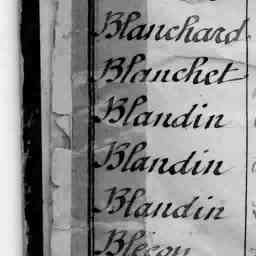 Blanchard
Blanchet
Blandin
Blandin
Blandin